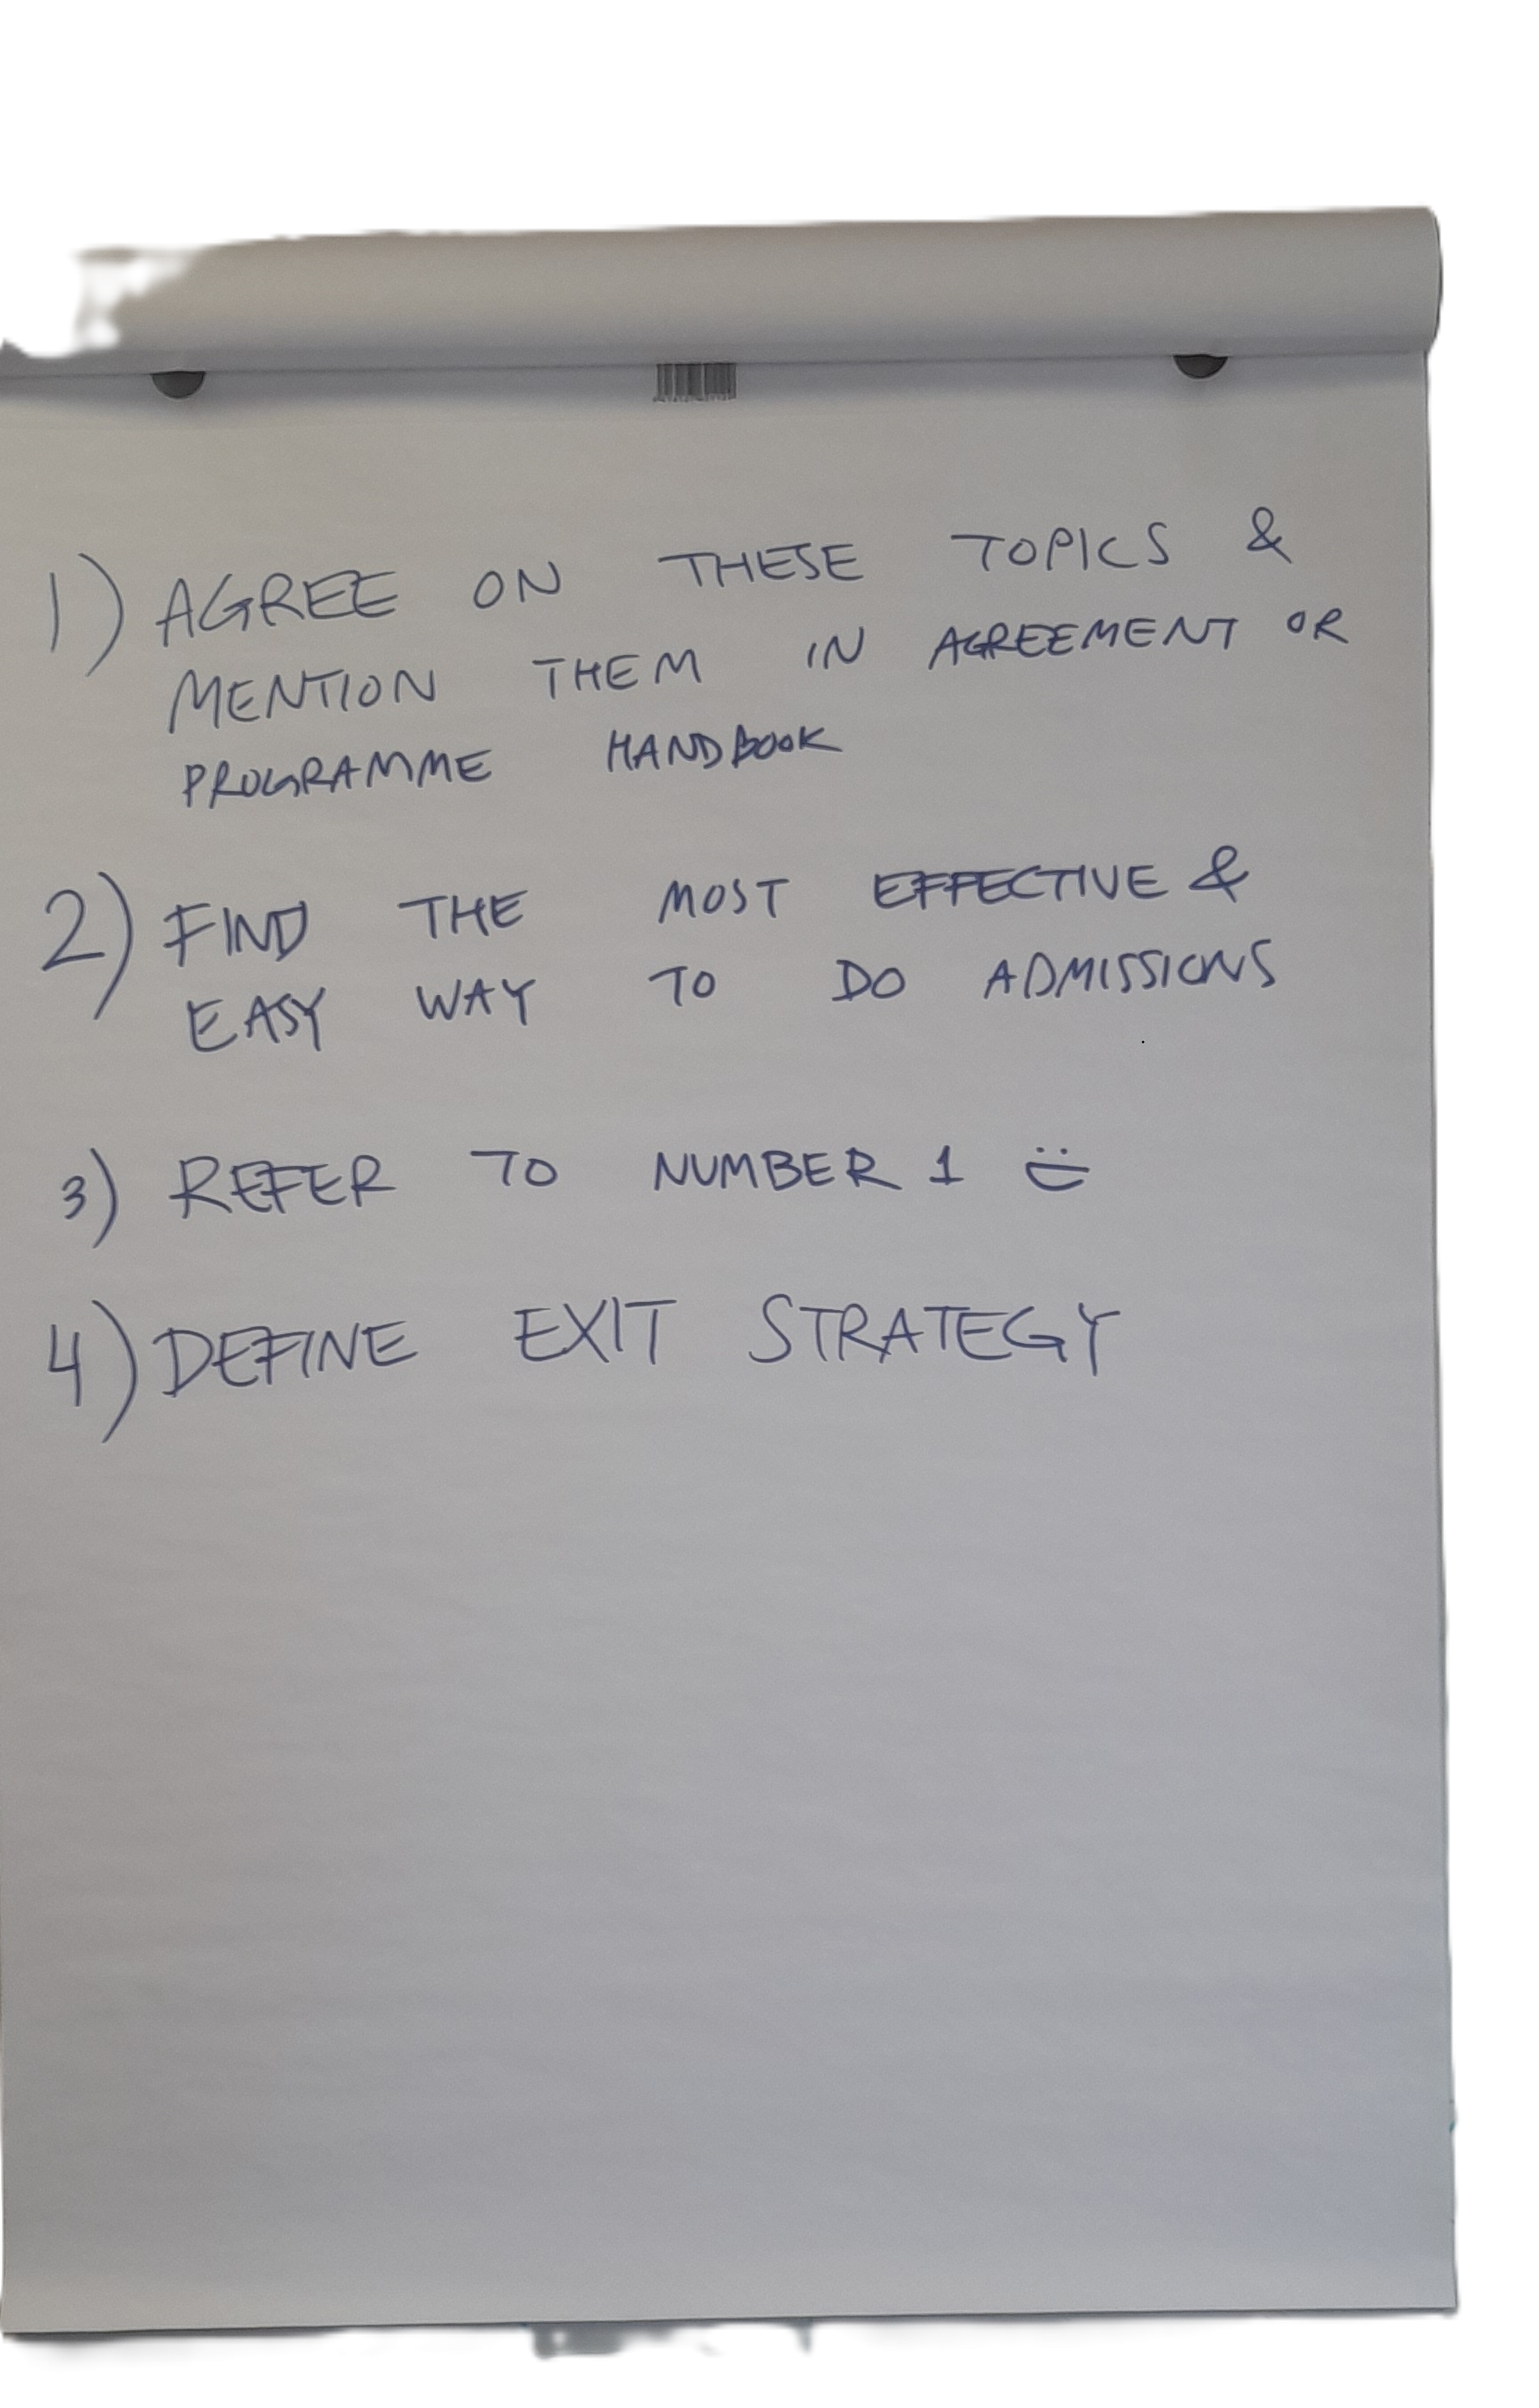 1) AGREE ON THESE TOPICS &
MENTION THEM IN AGREEMENT OR
PROGRAMME HANDBOOK
2) FIND THE MOST EFFECTIVE &
EASY WAY TO DO ADMISSIONS
3) REFER TO NUMBER 1 :)
4) DEFINE EXIT STRATEGY